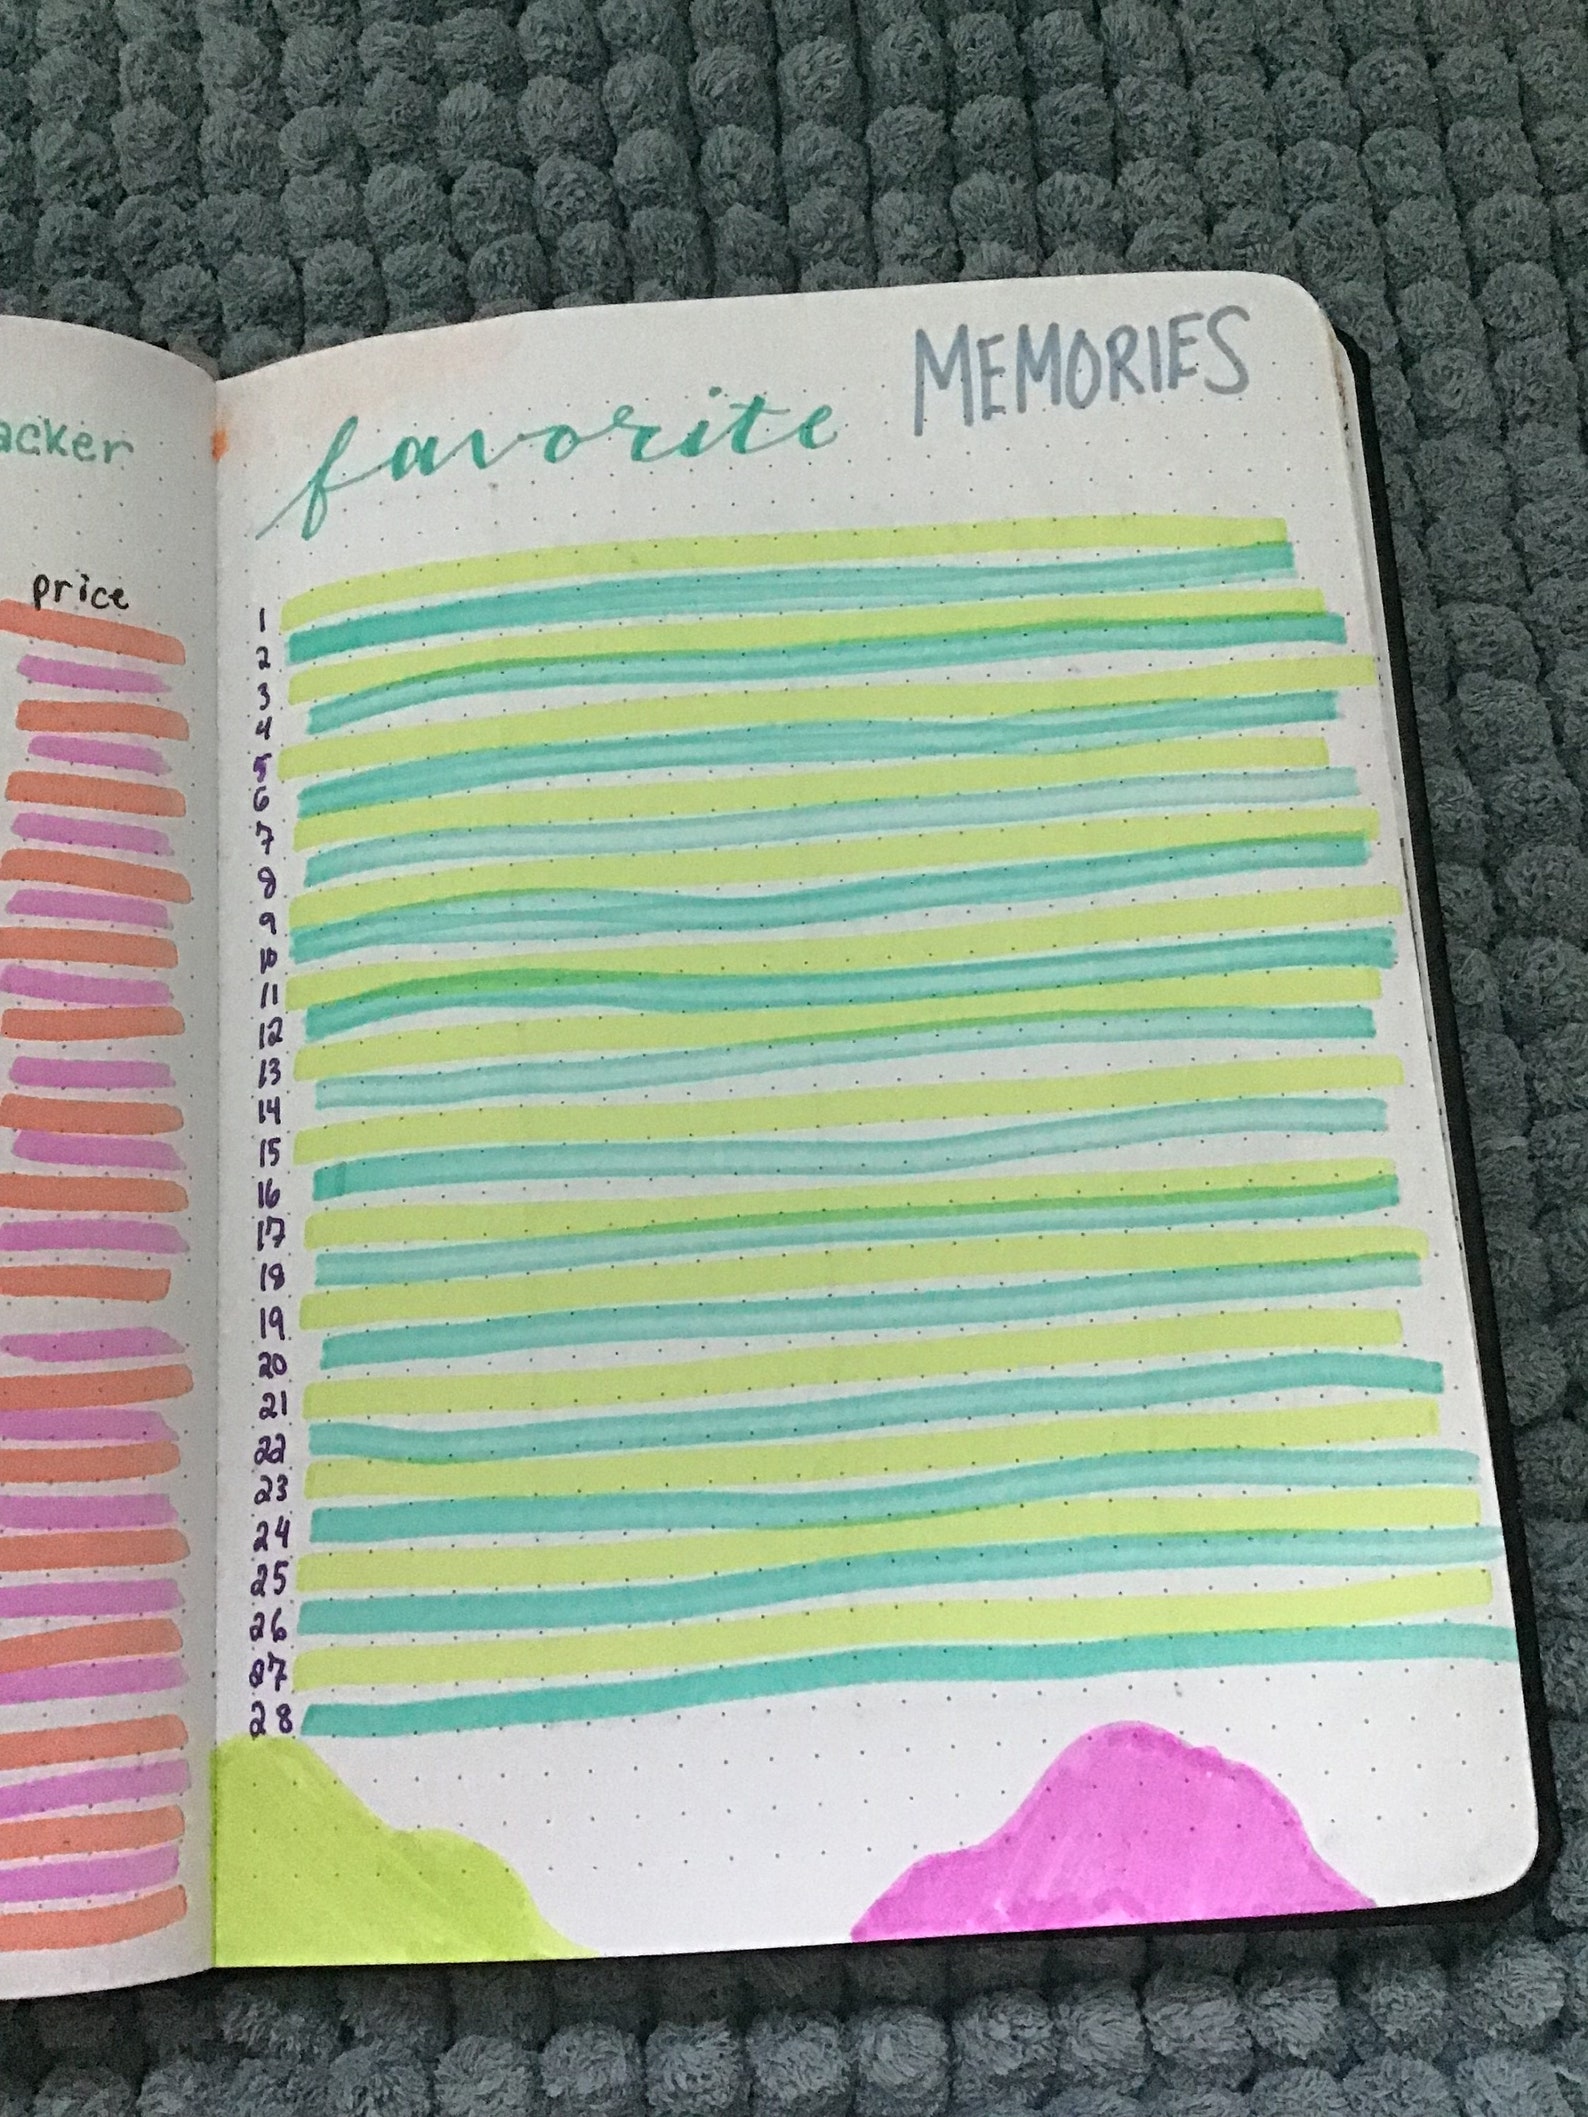 acker
price
favorite MEMORIES
1
2
3
4
5
6
7
8
9
10
11
12
13
14
15
16
17
18
19
20
21
22
23
24
25
26
27
28